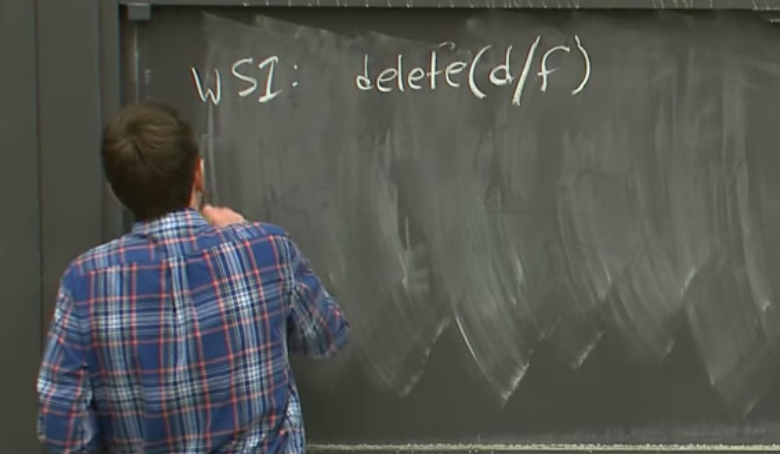 WS1: delete(d/f)